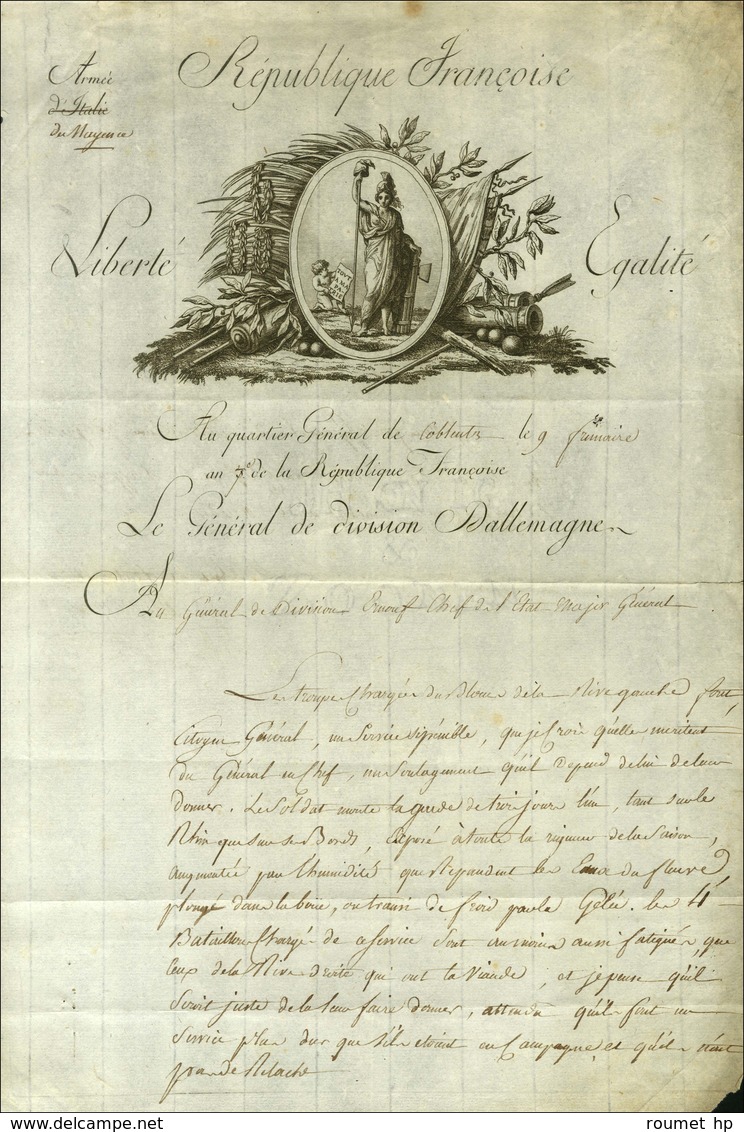 République Françoise
Armée
d'Italie
de Mayence
Liberté
Egalité
TOUT
A MA
PA
TRIE
Au quartier Général de Coblentz le 9 frimaire
an 7e de la République Françoise
Le Général de division Dallemagne
Au Général de Division Ernouf Chef de l'Etat Major Général
Les troupes Chargées du Blocus de la Rive gauche font,
Citoyen Général, un Service si pénible, que je Crois qu'elles méritent
du Général en Chef, un Soulagement qu'il depend de lui de leur
donner. Le Soldat monte la garde de trois jours l'un, tant sur le
Rhin que sur ses Bords, Exposé à toute la rigueur de la Saison,
augmentée par l'humidité que Repandent les Eaux du fleuve,
plongé dans la boue, ou transi de froid par la Gelée. les 4
Bataillons Chargés de ce Service sont au moins aussi fatigués, que
Ceux de la Rive droite qui ont la Viande, et je pense qu'il
Seroit juste de la leur faire donner, attendu qu'ils font un
Service plus dur que s'ils étoient en Campagne, et qu'ils n'ont
pas de Relache
roumet hp